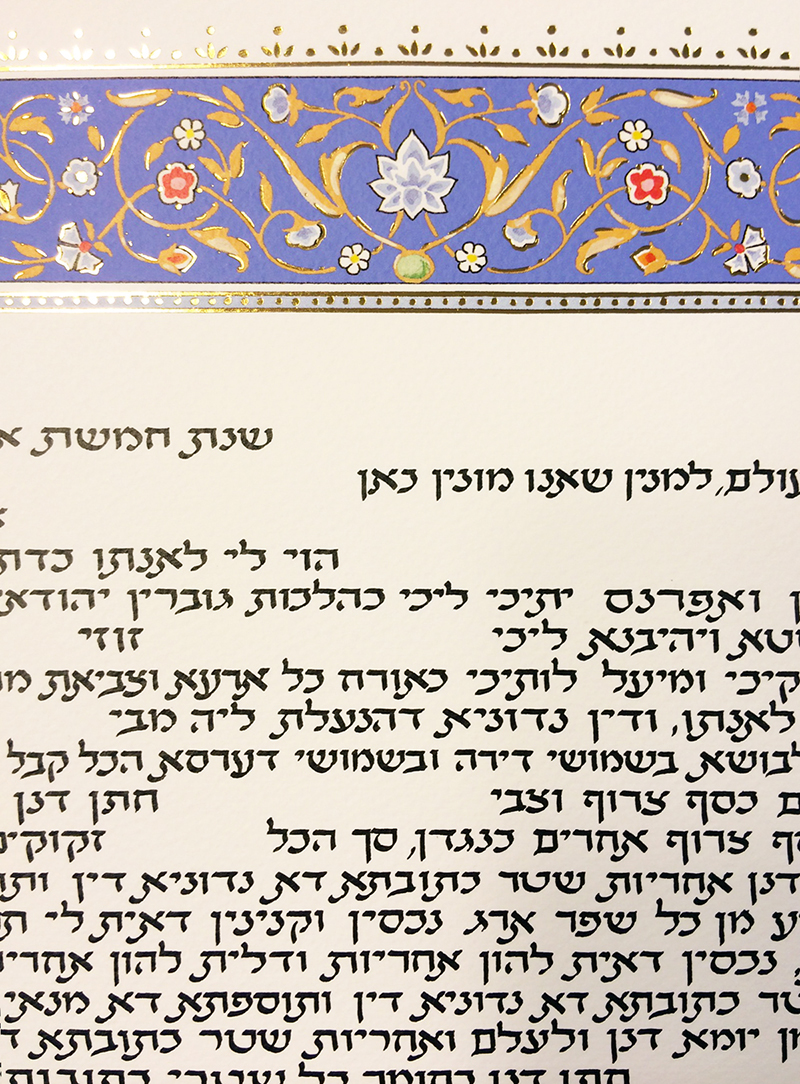 שנת חמשת
עולם, למנין שאנו מונין כאן
הוי לי לאנתו כדת
ואפרנס יתיכי ליכי כהלכות גוברין יהודאי
ויהיבנא ליכי זוזי
ומיעל לותיכי כאורח כל ארעא וצביאת
לאנתו, ודין נדוניא דהנעלת ליה מבי
לבושא בשמושי דירה ובשמושי דערסא הכל קבל
כסף צרוף וצבי חתן דנן
צרוף אחרים כנגדן, סך הכל
דנן אחריות שטר כתובתא דא נדוניא דין
מן כל שפר ארג נכסין וקנינין דאית לי
נכסין דאית להון אחריות ודלית להון
כתובתא דא נדוניא דין ותוספתא דא מנאי
יומא דנן ולעלם ואחריות שטר כתובתא
חתן דנן כחומר כל שטרי כתובות